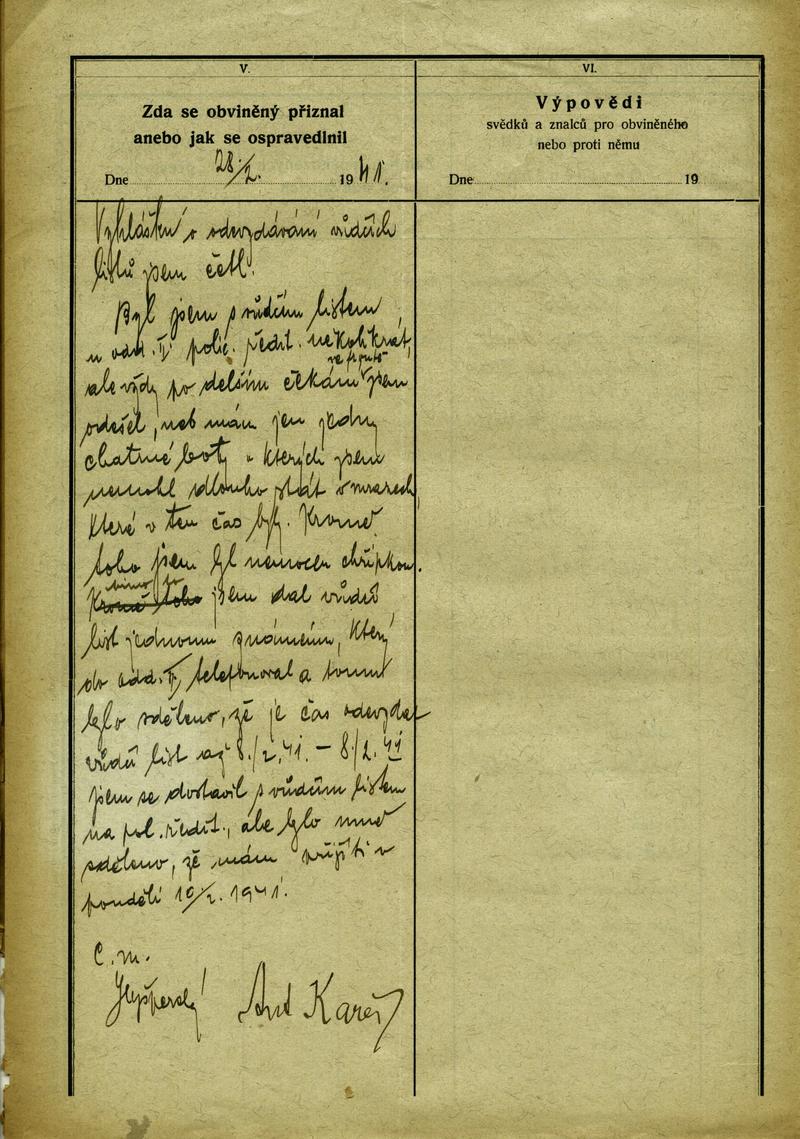 V.
Zda se obviněný přiznal
anebo jak se ospravedlnil
Dne 28./2. 1941.
VI.
Výpovědi
svědků a znalců pro obviněného
nebo proti němu
Dne 19
Vyhlášku o odevzdávání vůdčích
listů jsem četl.
Byl jsem s vůdčím listem
u odd. policie. ředit. několikrát,
ale vždy po delším čekání ve frontě jsem
odešel, neb mám jen jedny
chatrné boty v kterých jsem
nemohl dlouho stát v mrazech,
které v ten čas byly. Kromě
toho jsem byl nemocen chřipkou.
jsem dal vůdčí
list jednomu známému, který
do odd. telefonoval a tomu
bylo sděleno, že je čas odevzdat
vůdčí list až 8./2.41. – 8./2.41
jsem se dostavil s vůdčím listem
na pol. ředit., ale bylo mně
sděleno, že mám přijíti v
pondělí 10/2. 1941.
Č.m.
Ant Kareš